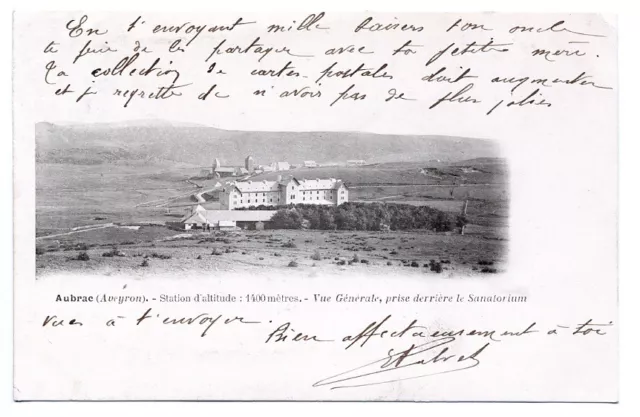 En t'envoyant mille baisers ton oncle
te prie de les partager avec ta petite mère.
Ta collection de cartes-postales doit augmenter
et je regrette de n'avoir pas de plus jolies
Aubrac (Aveyron). - Station d'altitude : 1400 mètres. - Vue Générale, prise derrière le Sanatorium
vues à t'envoyer. Bien affectueusement à toi